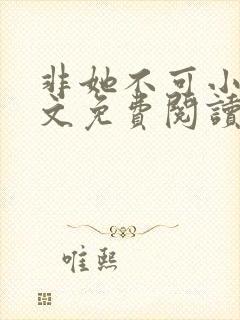 非她不可小
文免費閱讀
唯熙